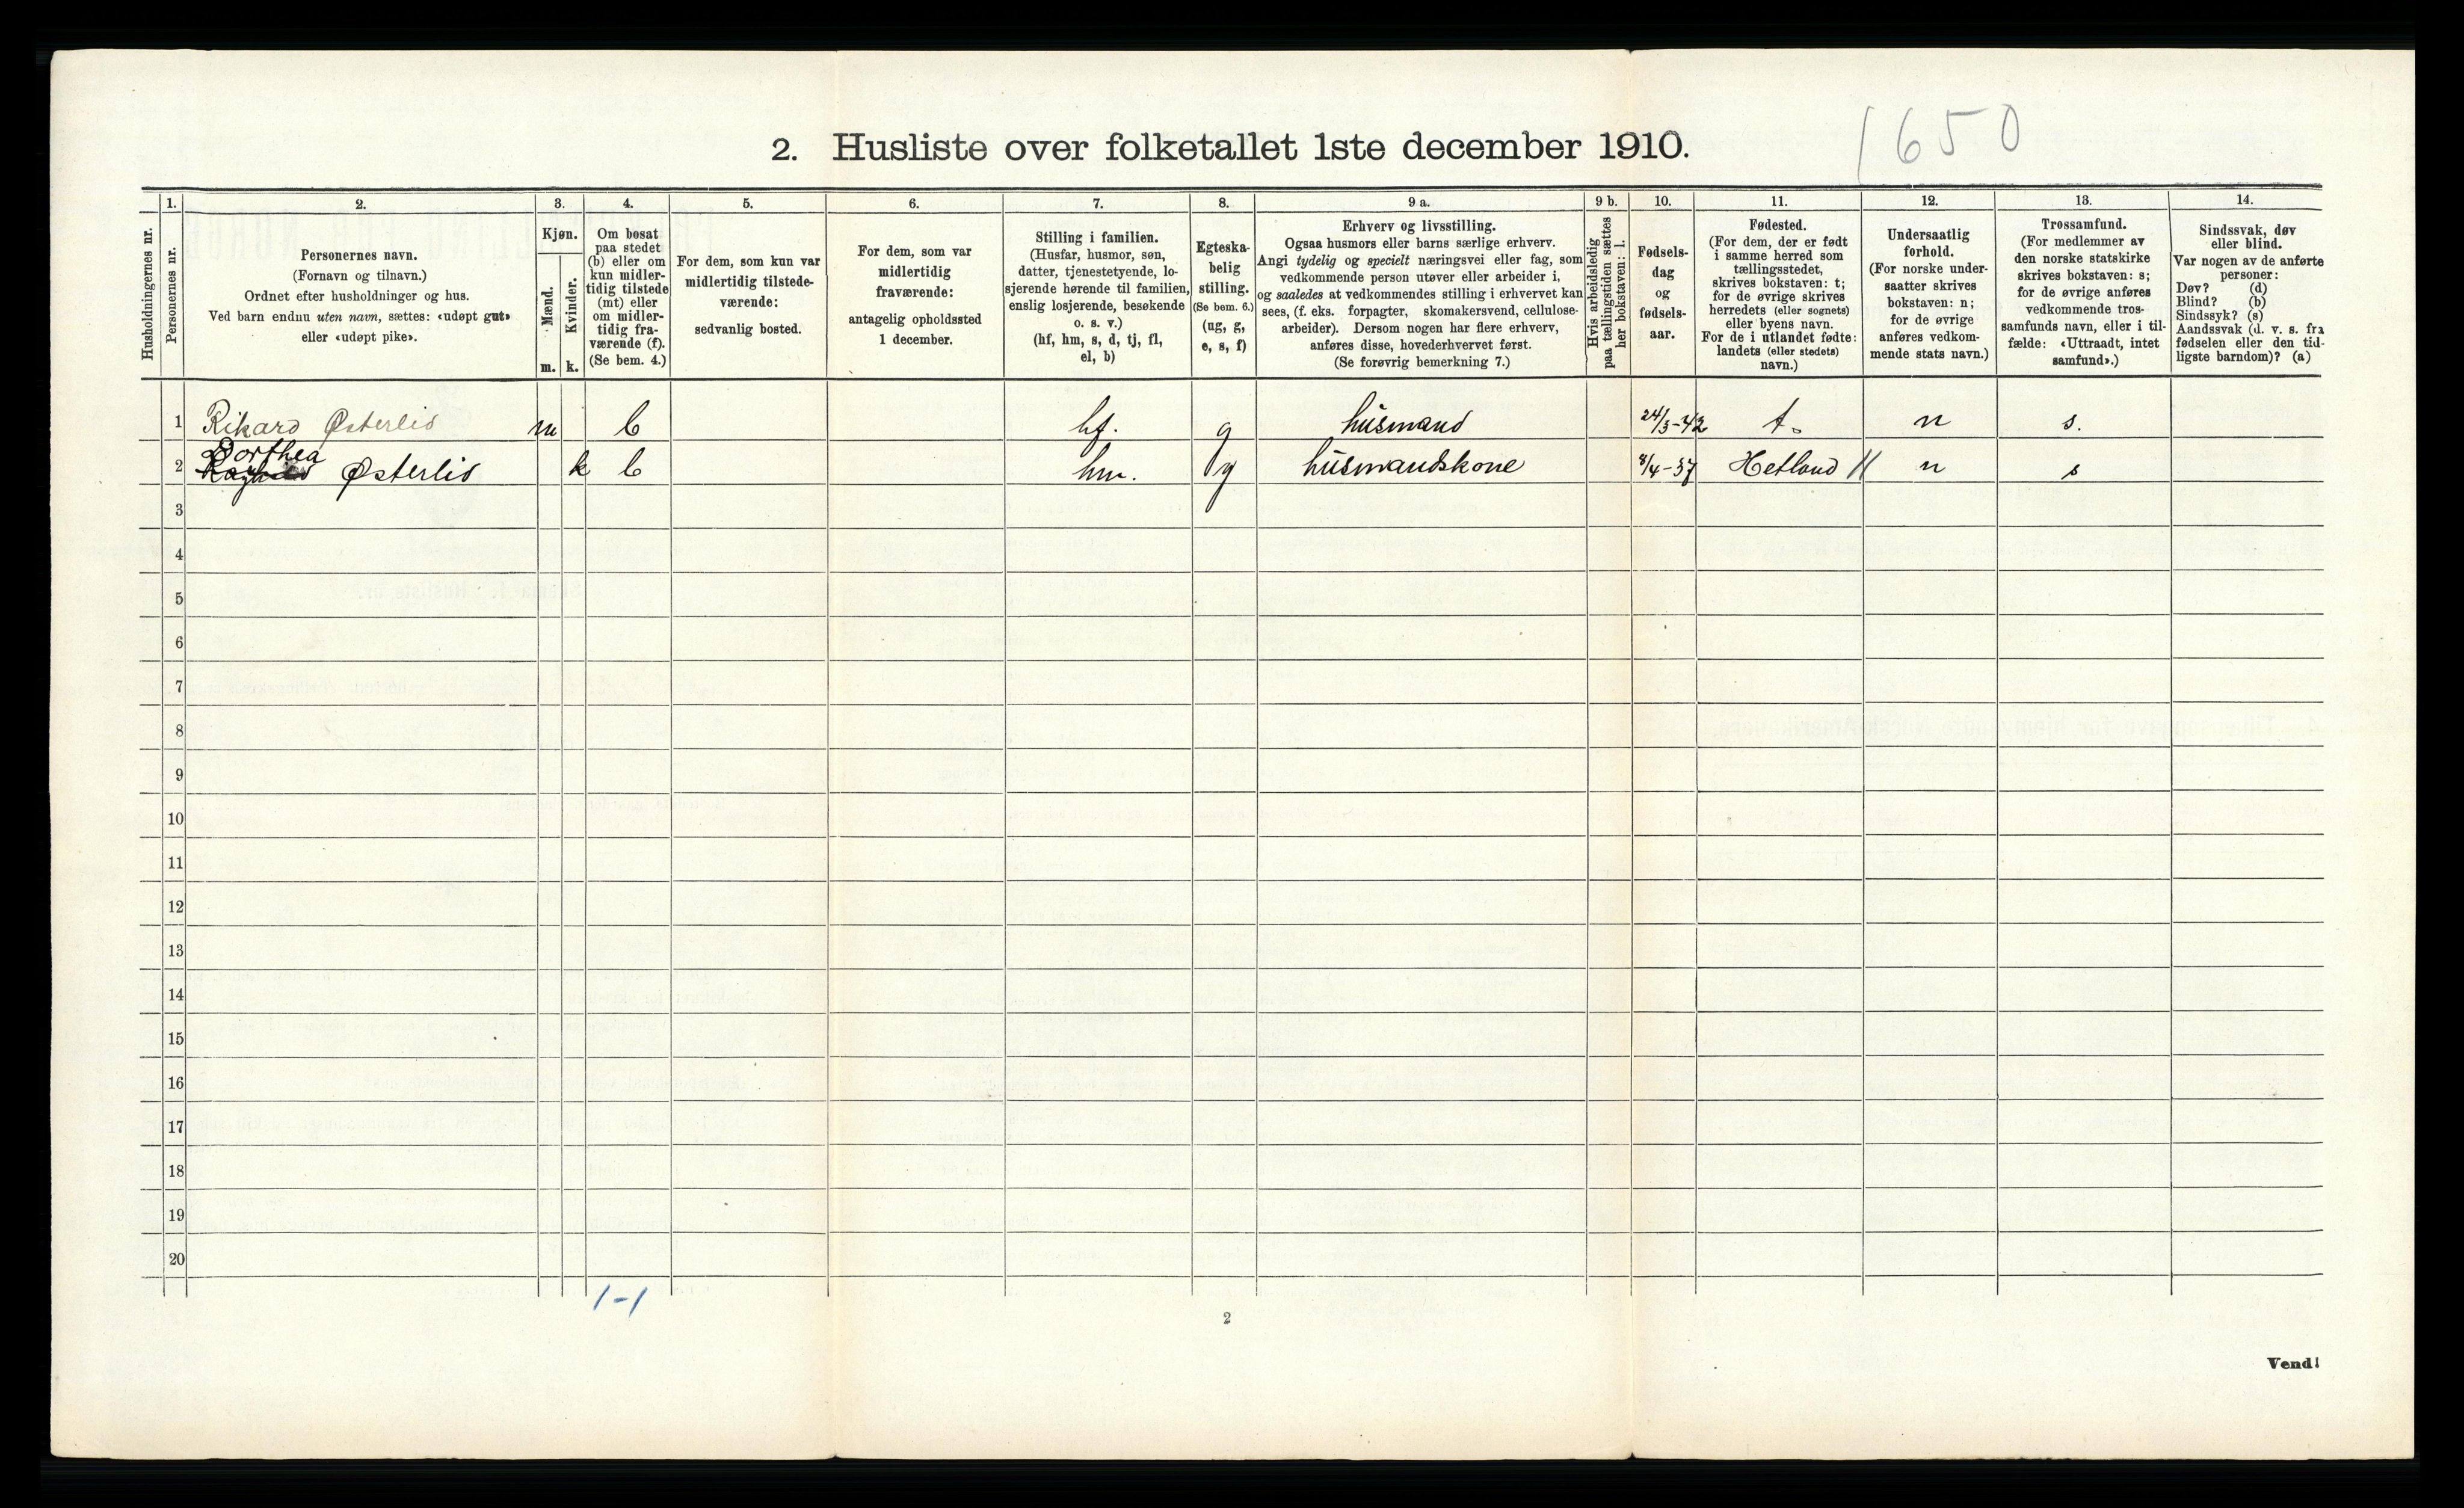 1650
2. Husliste over folketallet 1ste december 1910.
Husholdningernes nr.
1.
Personernes nr.
2.
Personernes navn.
(Fornavn og tilnavn.)
Ordnet efter husholdninger og hus.
Ved barn endnu uten navn, sættes: «udøpt gut»
eller «udøpt pike».
3.
Kjøn.
Mænd.
m.
Kvinder.
k.
4.
Om bosat
paa stedet
(b) eller om
kun midler-
tidig tilstede
(mt) eller
om midler-
tidig fra-
værende (f).
(Se bem. 4.)
5.
For dem, som kun var
midlertidig tilstede-
værende:
sedvanlig bosted.
6.
For dem, som var
midlertidig
fraværende:
antagelig opholdssted
1 december.
7.
Stilling i familien.
(Husfar, husmor, søn,
datter, tjenestetyende, lo-
sjerende hørende til familien,
enslig losjerende, besøkende
o. s. v.)
(hf, hm, s, d, tj, fl,
el, b)
8.
Egteska-
belig
stilling.
(Se bem. 6.)
(ug, g,
e, s, f)
9 a.
Erhverv og livsstilling.
Ogsaa husmors eller barns særlige erhverv.
Angi tydelig og specielt næringsvei eller fag, som
vedkommende person utøver eller arbeider i,
og saaledes at vedkommendes stilling i erhvervet kan
sees, (f. eks. forpagter, skomakersvend, cellulose-
arbeider). Dersom nogen har flere erhverv,
anføres disse, hovederhvervet først.
(Se forøvrig bemerkning 7.)
9 b.
Hvis arbeidsledig
paa tællingstiden sættes
her bokstaven: l.
10.
Fødsels-
dag
og
fødsels-
aar.
11.
Fødested.
(For dem, der er født
i samme herred som
tællingsstedet,
skrives bokstaven: t;
for de øvrige skrives
herredets (eller sognets)
eller byens navn.
For de i utlandet fødte:
landets (eller stedets)
navn.)
12.
Undersaatlig
forhold.
(For norske under-
saatter skrives
bokstaven: n;
for de øvrige
anføres vedkom-
mende stats navn.)
13.
Trossamfund.
(For medlemmer av
den norske statskirke
skrives bokstaven: s;
for de øvrige anføres
vedkommende tros-
samfunds navn, eller i til-
fælde: «Uttraadt, intet
samfund».)
14.
Sindssvak, døv
eller blind.
Var nogen av de anførte
personer:
Døv? (d)
Blind? (b)
Sindssyk? (s)
Aandssvak (d. v. s. fra
fødselen eller den tid-
ligste barndom)? (a)
1 Rikard Østerlis m b hf. g husmand 24/3-42 t. n s.
Dorthea
2 Østerlis k b hm. g husmandskone 8/4-37 Hetland n s
3
4
5
6
7
8
9
10
11
12
13
14
15
16
17
18
19
20
1-1
2
Vend!